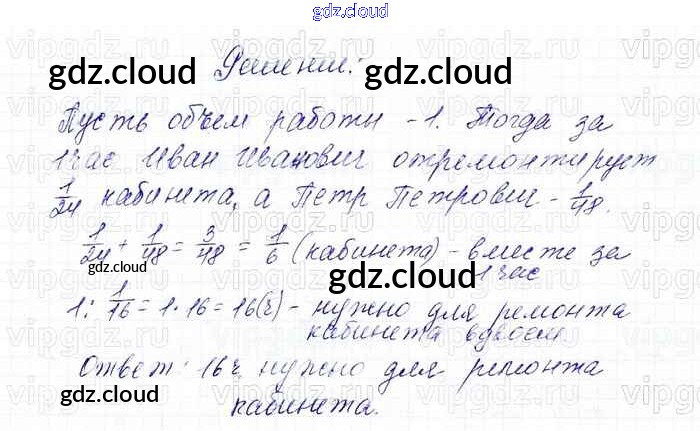 gdz.cloud
Решение:
Пусть объем работы - 1. Тогда за
1 час Иван Иванович отремонтирует
1/24 кабинета, а Петр Петрович - 1/48.
1/24 + 1/48 = 3/48 = 1/6 (кабинета) - вместе за
1 час
1 : 1/16 = 1 · 16 = 16 (ч) - нужно для ремонта
кабинета вдвоем
Ответ: 16 ч нужно для ремонта
кабинета.
gdz.cloud
gdz.cloud
gdz.cloud
gdz.cloud
gdz.cloud
gdz.cloud
gdz.cloud